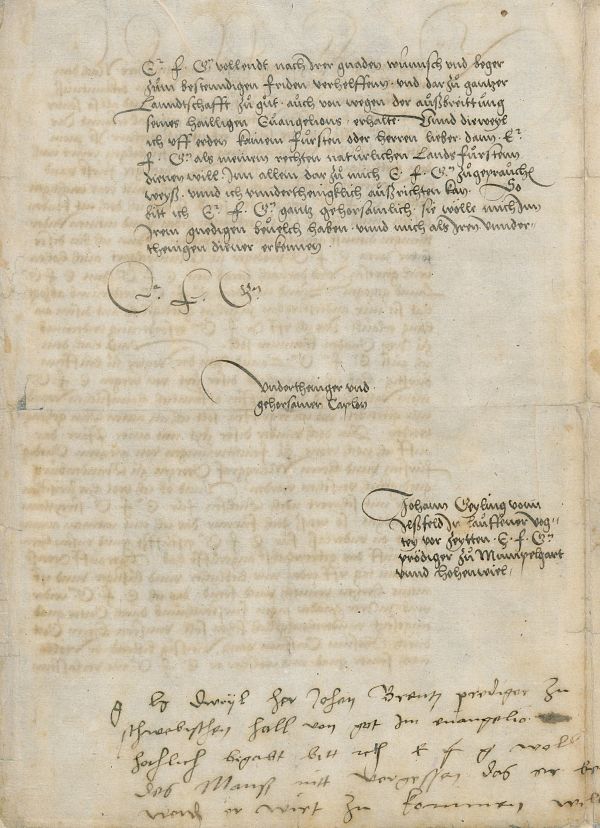 E. F. Gn vollendt nach Irer gnaden wunsch vnd beger
zům bestendigen friden verhelffenn. vnd dar zů gantzer
Lanndtschafft zů gůt. auch von wegen der außbreittung
seines hailligen Euangelions. erhalte. Vnnd dieweyl
ich vff erden kainem fürsten oder herren lieber. dann. E.
F. Gn als meinem rechten natürlichen Landsfürstenn
dienen will. Inn allem dar zů mich E. F. Gn zůgeprauchen
weyß. vnnd ich vnnderthenigklich außrichten kan. So
bitt ich E. F. Gn gantz gehorsamlich. sie wölle mich Inn
Irem gnedigen beuelch haben. vnnd mich als Iren vnnder-
thenigen diener erkennen
E. F. Gn
Vnndertheniger vnd
gehorsamer Caplon
Johann Geyling vonn
Ilßfeld In Lauffener vog-
tey vor Zeytten. E. F. Gn
prödiger zů Mümpelgart
vnnd hohenwiel.
dwyl her Johan Brentz prediger zu
schwebischen hall von got Im euangelio
hochlich begabt bitt ich E f g woll
des Manß nitt vergessen das er
er wirt zu kommen